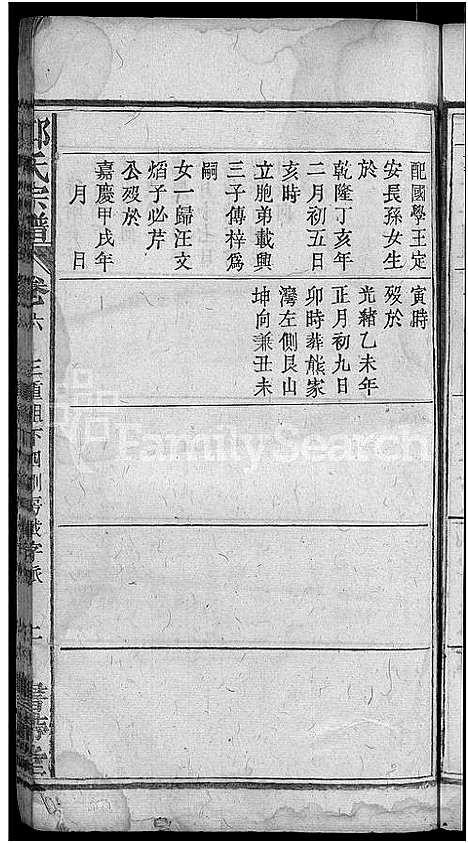 配國學王定
安長孫女生
於
乾隆丁亥年
二月初五日
亥時
立胞弟載興
三子傳梓為
嗣
女一歸汪文
焰子必芹
公歿於
嘉慶甲戌年
月 日
寅時
歿於
光緒乙未年
正月初九日
卯時葬熊家
灣左側艮山
坤向兼丑未
氏宗譜
卷六
FamilySearch